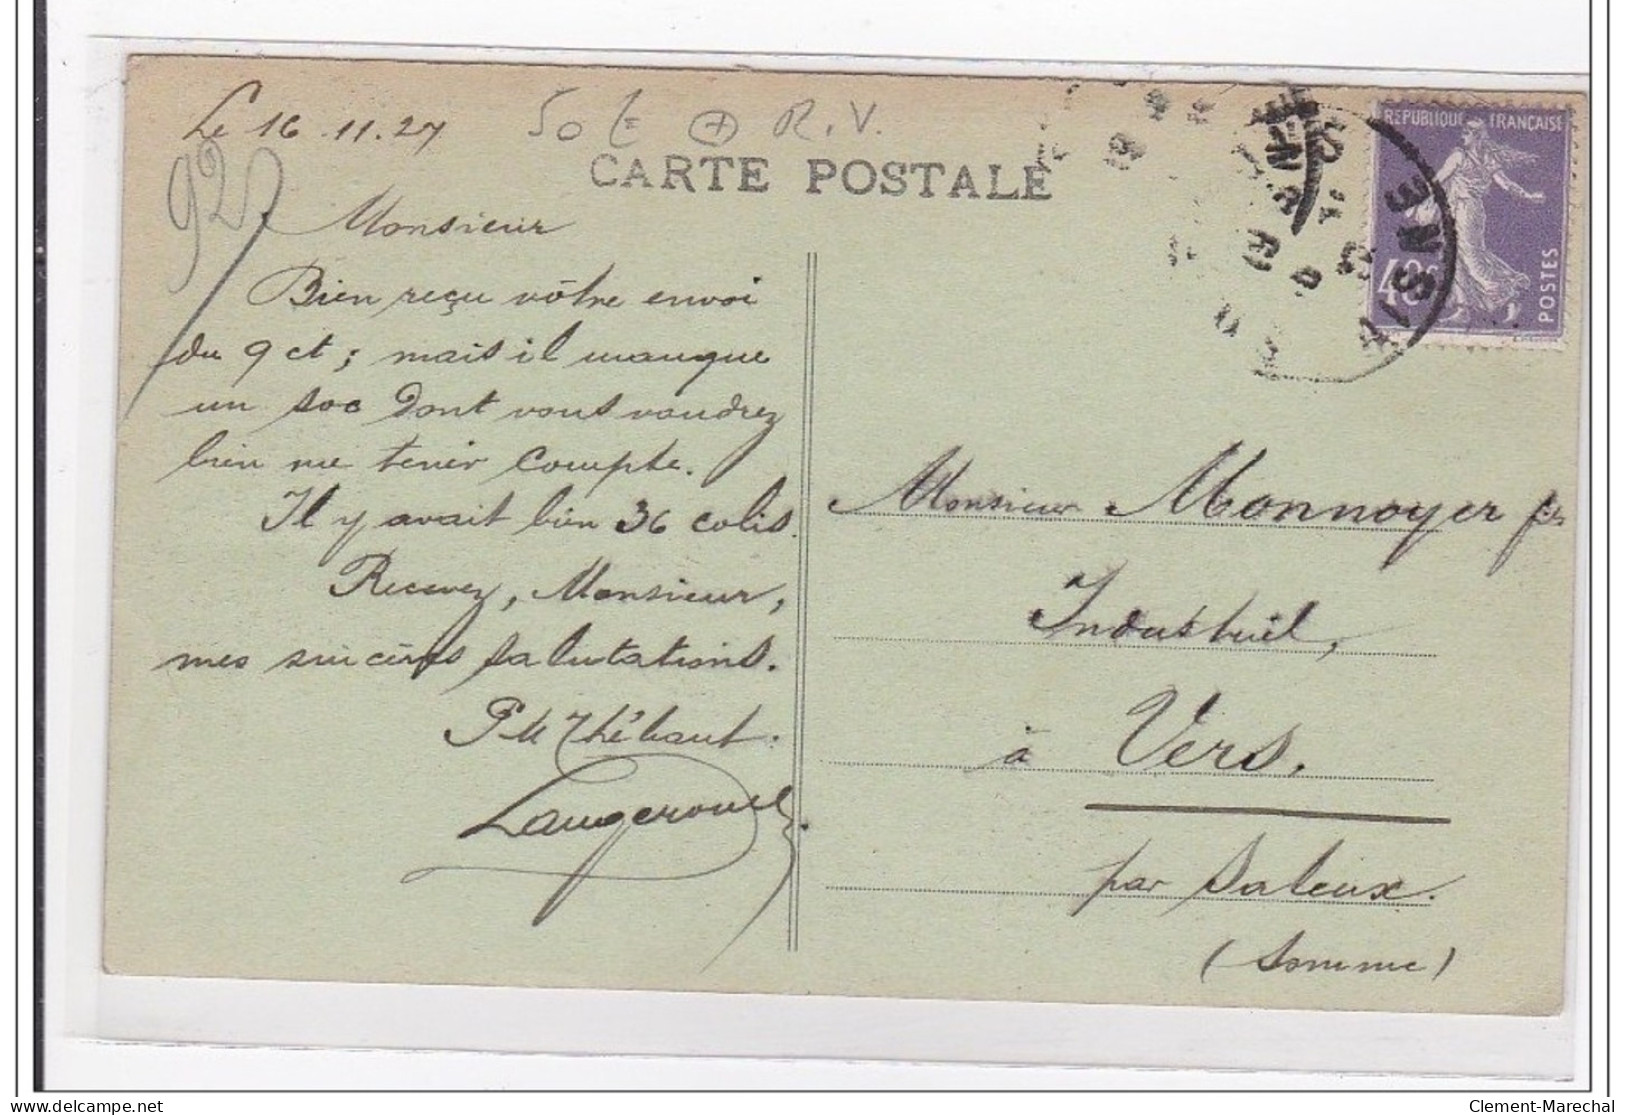 Le 16 11.27
50 E + R.V.
92
CARTE POSTALE
Monsieur
Bien reçu vôtre envoi
du 9 ct ; mais il manque
un soc dont vous voudrez
bien me tenir compte.
Il y avait bien 36 colis.
Recevez, Monsieur,
mes sincères salutations.
Thébaut.
RÉPUBLIQUE FRANÇAISE
40c
POSTES
AISNE
Monsieur Monnoyer
Industriel,
à Vers,
par Saleux.
(Somme)
Clement-Marechal